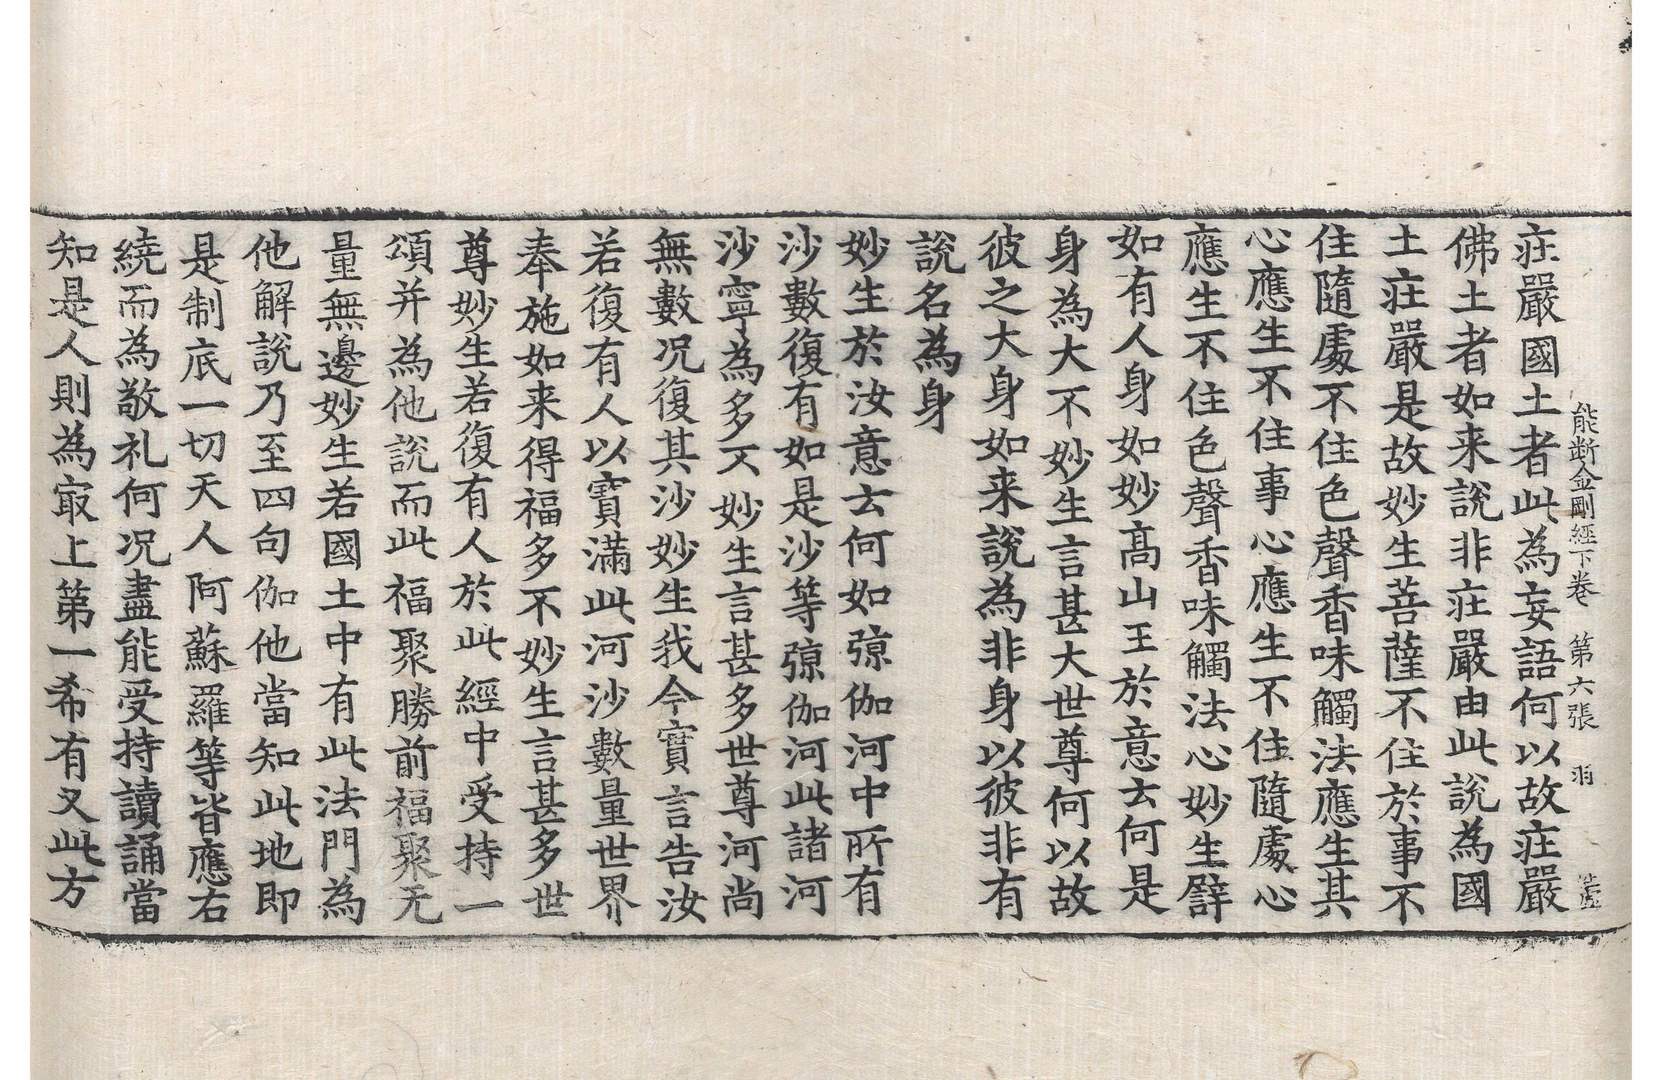 能断金剛經下卷 第六張 羽
莊嚴國土者此為妄語何以故莊嚴
佛土者如来說非莊嚴由此說為國
土莊嚴是故妙生菩薩不住於事不
住隨處不住色聲香味觸法應生其
心應生不住事心應生不住隨處心
應生不住色聲香味觸法心妙生譬
如有人身如妙高山王於意云何是
身為大不妙生言甚大世尊何以故
彼之大身如来說為非身以彼非有
說名為身
妙生於汝意云何如弶伽河中所有
沙數復有如是沙等弶伽河此諸河
沙寧為多不妙生言甚多世尊河尚
無數况復其沙妙生我今實言告汝
若復有人以寶滿此河沙數量世界
奉施如来得福多不妙生言甚多世
尊妙生若復有人於此經中受持一
頌并為他說而此福聚勝前福聚无
量無邊妙生若國土中有此法門為
他解說乃至四句伽他當知此地即
是制底一切天人阿蘇羅等皆應右
繞而為敬礼何况盡能受持讀誦當
知是人則為㝡上第一希有又此方